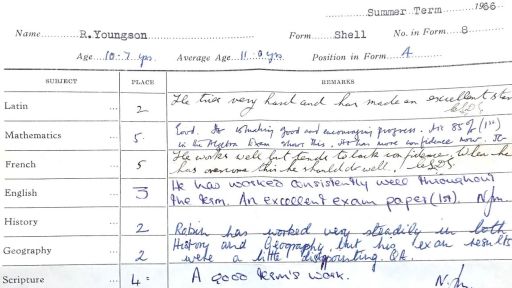 Summer Term 1966
Name R. Youngson Form Shell No. in Form 8
Age 10-7 yrs. Average Age 11-0 yrs. Position in Form 4
SUBJECT PLACE REMARKS
Latin ... 2 He tries very hard and has made an excellent start
Mathematics ... 5. Good. He is making good and encouraging progress. His 85% (1st)
in his Algebra Exam shows this. He has more confidence now.
French ... 5 He works well but tends to lack confidence. When he
has overcome this he should do well.
English ... 3 He has worked consistently well throughout
the term. An excellent exam paper (1st). N.Jm.
History ... 2 Robin has worked very steadily in both
Geography ... 2 History and Geography, but his exam results
were a little disappointing.
Scripture ... 4= A good term's work. N.Jm.